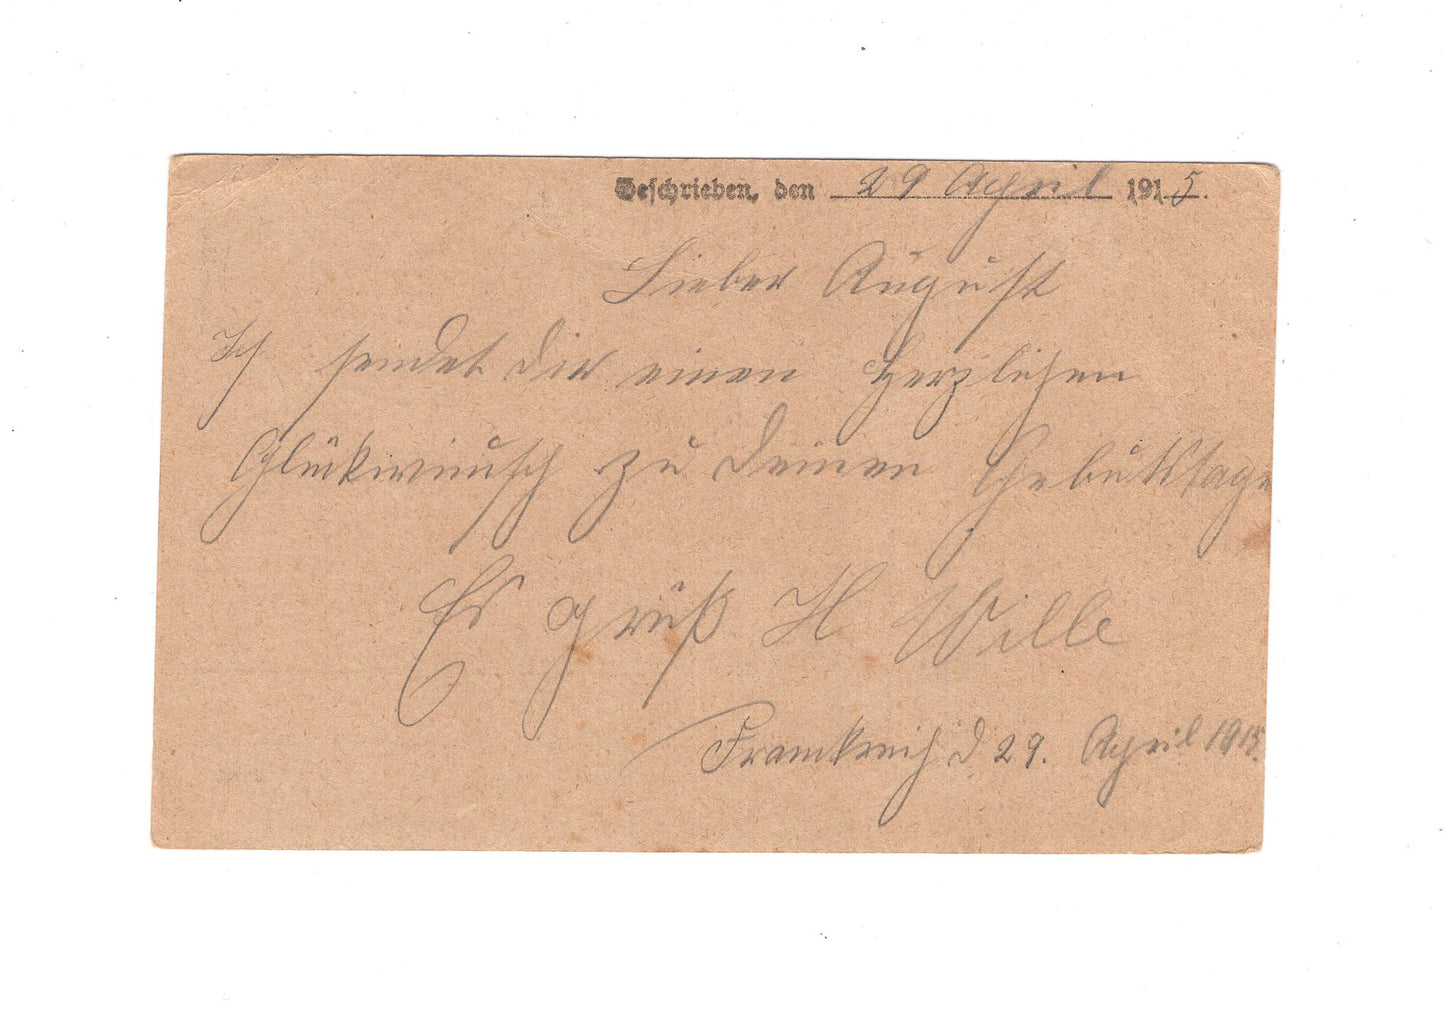 Geschrieben, den 29 April 1915.
Lieber August
Ich sendet dir einen Herzlichen
Glückwunsch zu deinen Gebutstage
Es grüß H Wille
Frankreich d 29. April 1915.